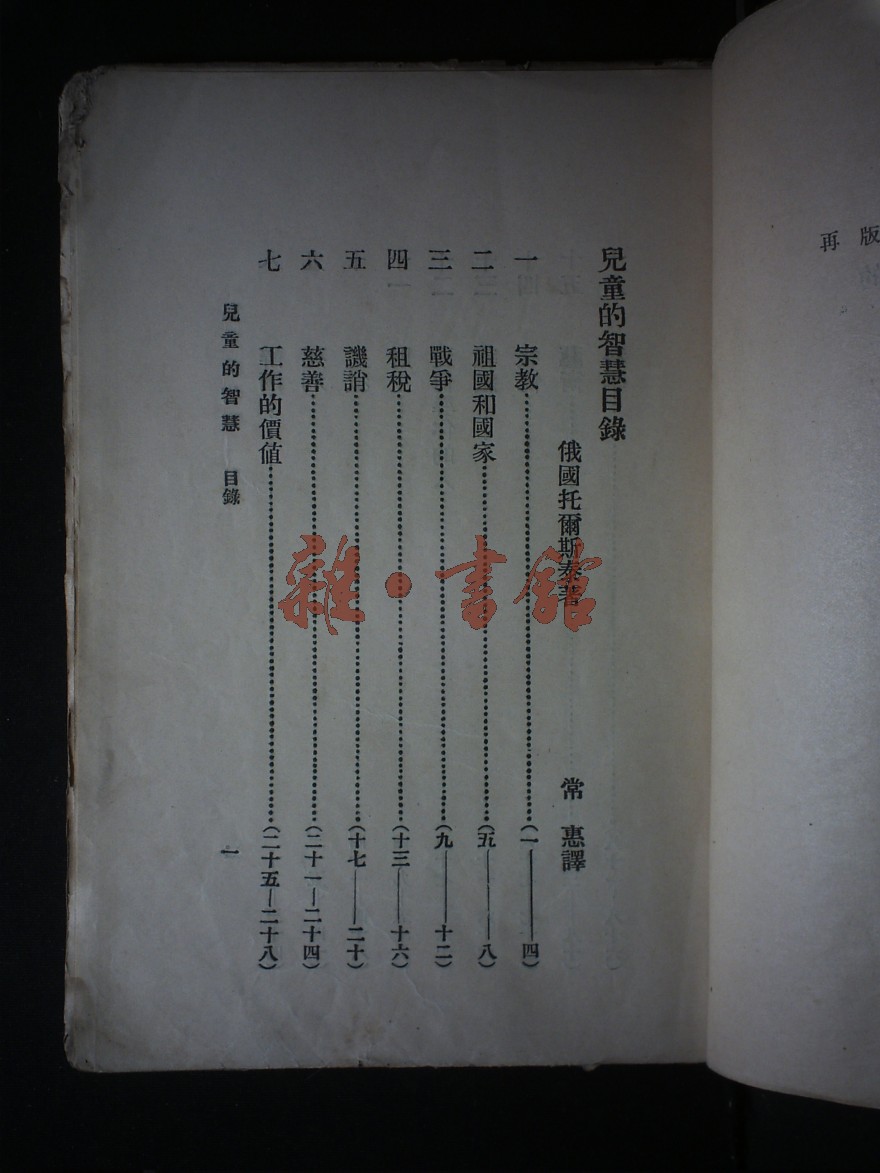 再版
兒童的智慧目錄
俄國托爾斯泰著 常惠譯
一 宗教……(一——四)
二 祖國和國家……(五——八)
三 戰爭……(九——十二)
四 租稅……(十三——十六)
五 譏誚……(十七——二十)
六 慈善……(二十一—二十四)
七 工作的價值……(二十五—二十八)
兒童的智慧 目錄 一
雜·書館